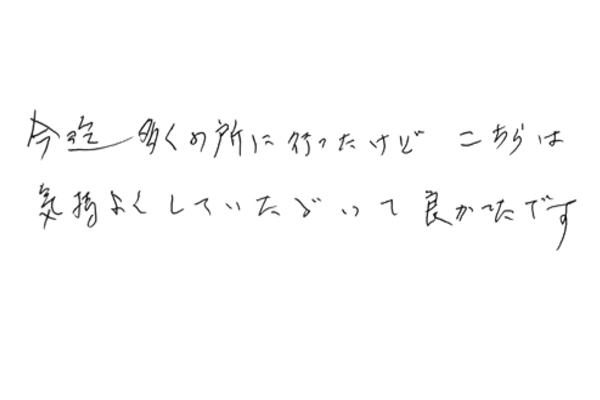 今迄多くの所に行ったけど こちらは
気持よくしていたどいて良かったです